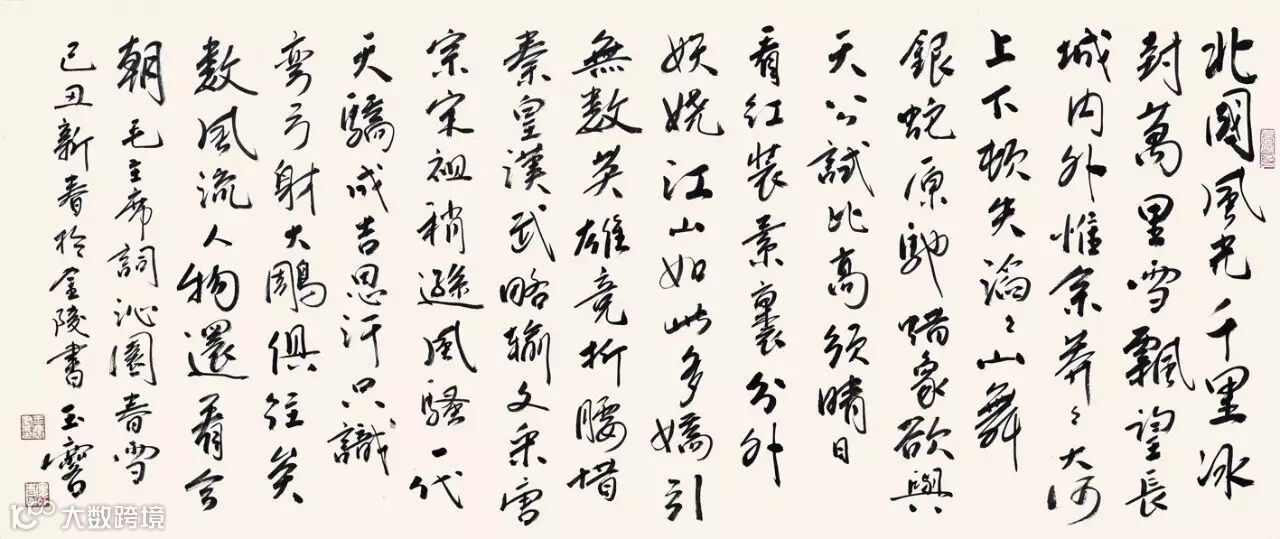 北國風光千里冰
封萬里雪飄望長
城内外惟餘莽々大河
上下頓失滔々山舞
銀蛇原馳蜡象欲與
天公試比高須晴日
看紅裝素裹分外
妖娆江山如此多嬌引
無数英雄竞折腰惜
秦皇漢武略輸文采唐
宗宋祖稍遜風騷一代
天驕成吉思汗只識
彎弓射大鵰俱往矣
数風流人物還看今
朝 毛主席詞沁園春雪
己丑新春於金陵書 玉寶
大数跨境